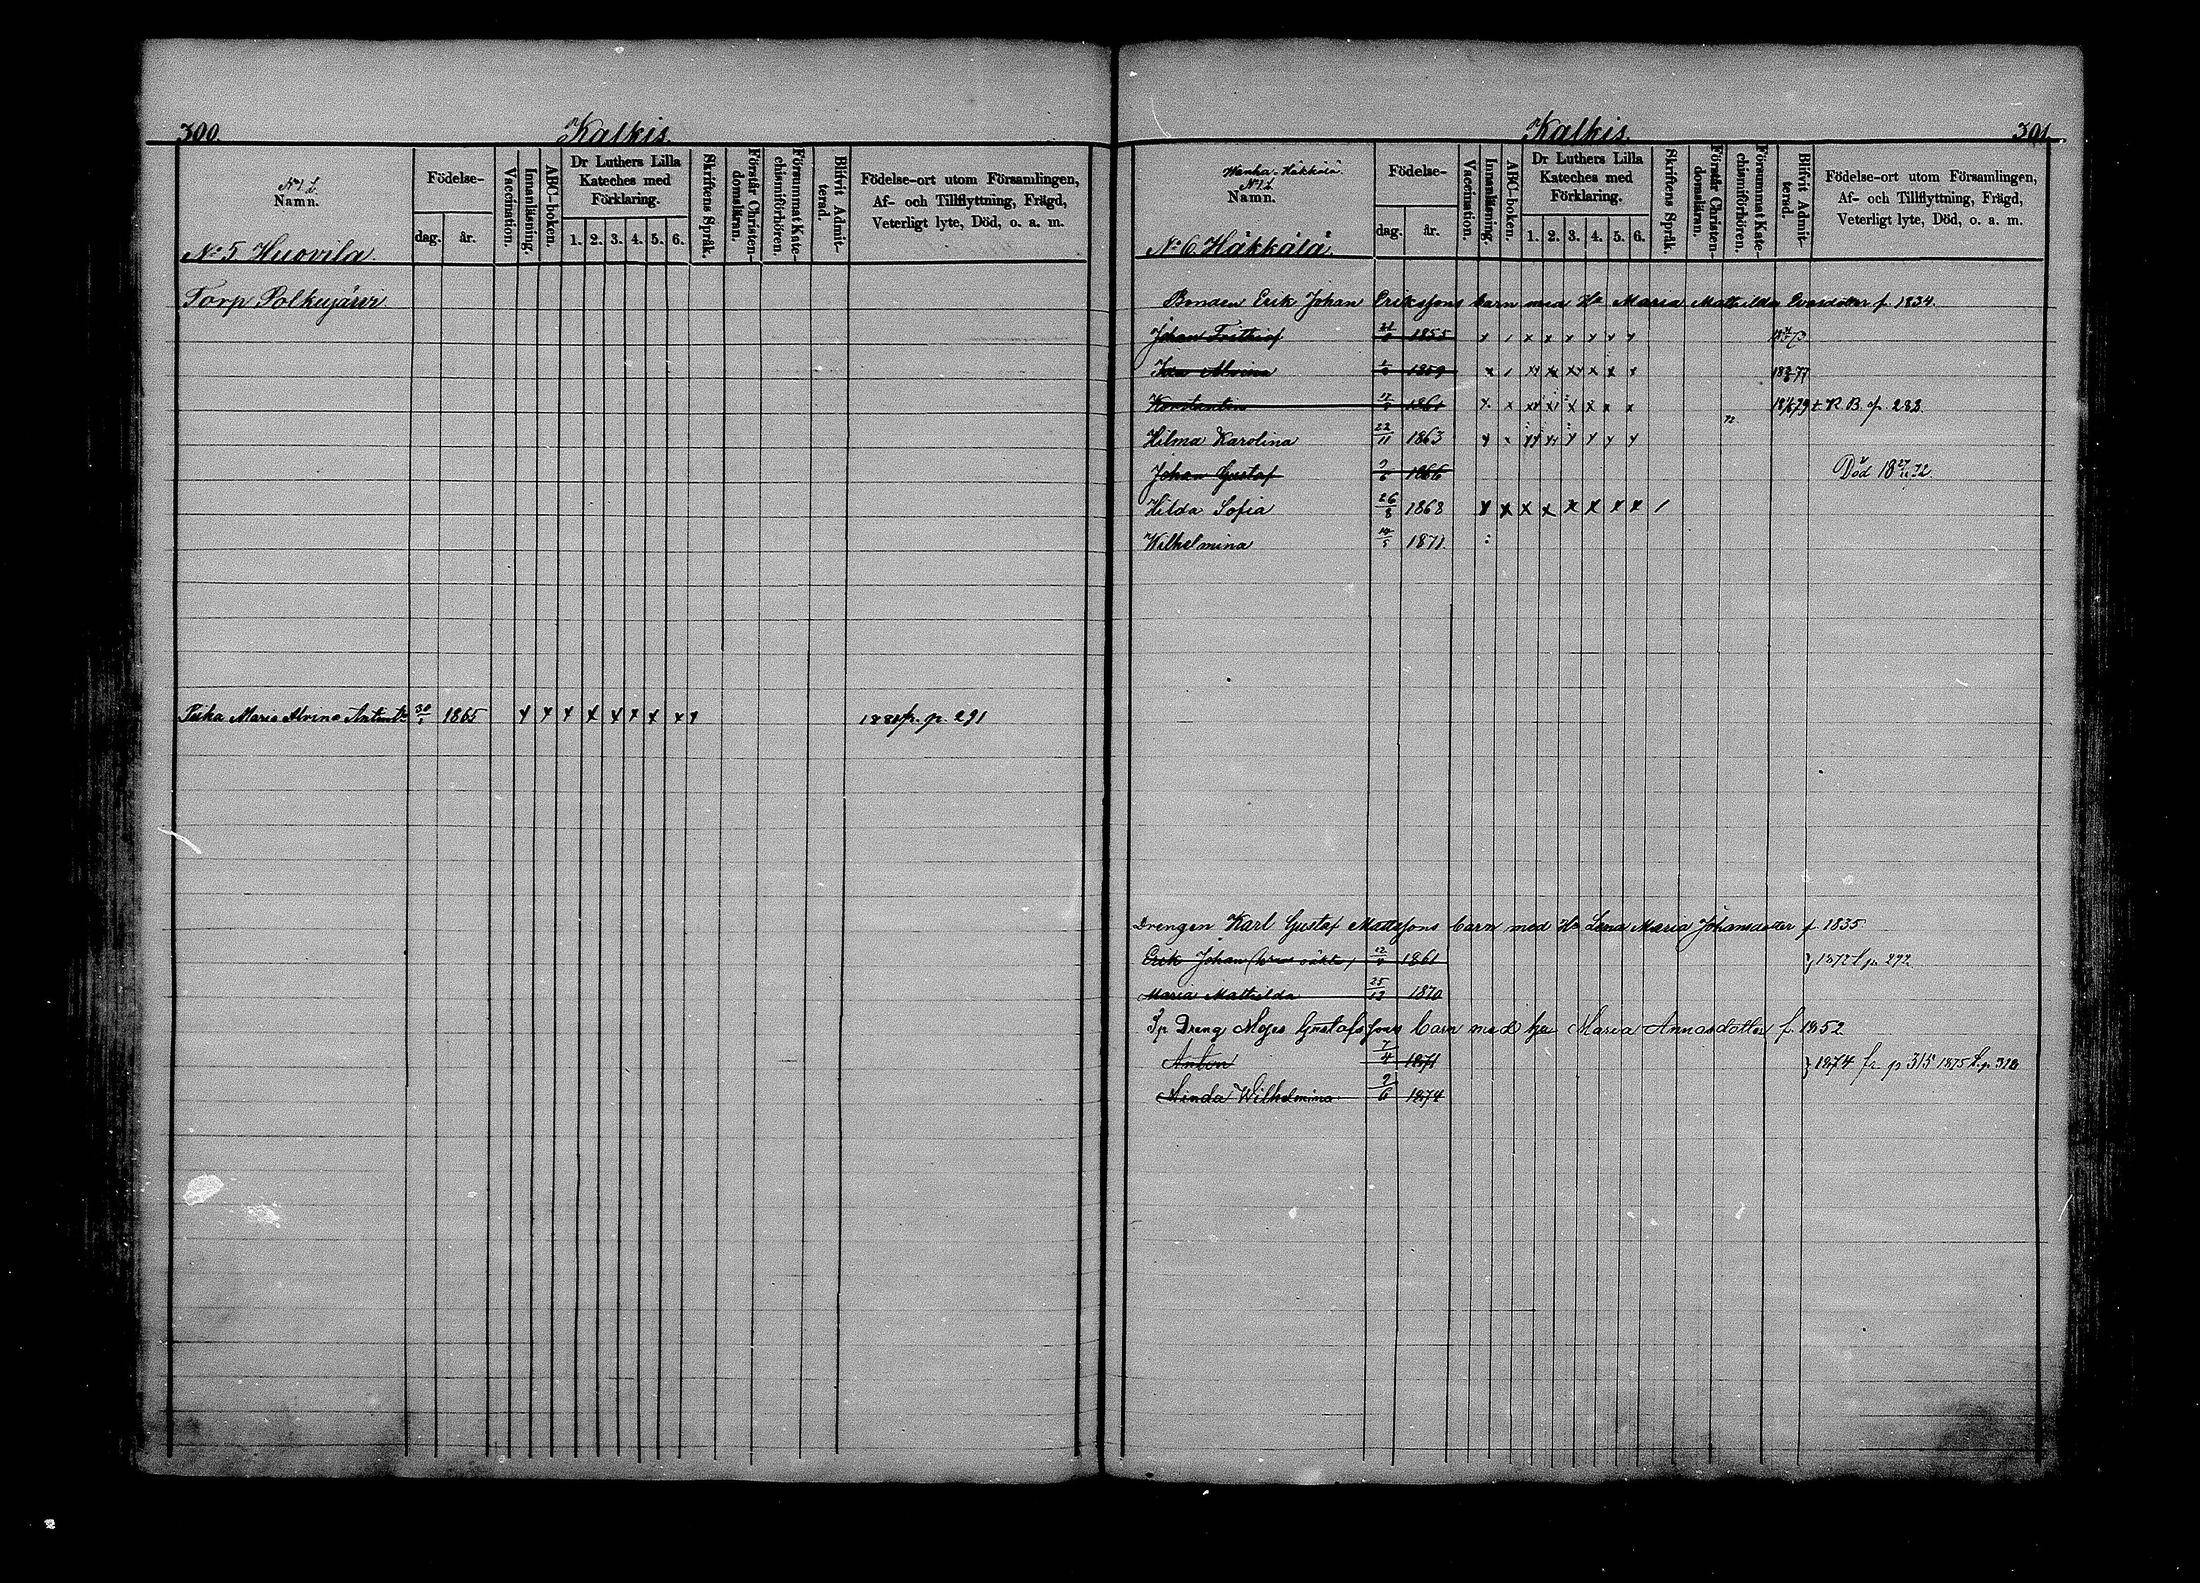 300. Kalkis.
N:1 L.
Namn.
Födelse-
dag. år.
Vaccination.
Innanläsning.
ABC-boken.
Dr Luthers Lilla
Kateches med
Förklaring.
1. 2. 3. 4. 5. 6.
Skriftens Språk.
Förstår Christen-
domsläran.
Försummat Kate-
chismiförhören.
Blifvit Admit-
terad.
Födelse-ort utom Församlingen,
Af- och Tillflyttning, Frägd,
Veterligt lyte, Död, o. a. m.
No 5 Huovila.
Torp Polkujärvi
Maria Alvina 1865 x x x x x x x x x p. 291
Kalkis. 301.
Wanha Häkkälä
N:1 L.
Namn.
Födelse-
dag. år.
Vaccination.
Innanläsning.
ABC-boken.
Dr Luthers Lilla
Kateches med
Förklaring.
1. 2. 3. 4. 5. 6.
Skriftens Språk.
Förstår Christen-
domsläran.
Försummat Kate-
chismiförhören.
Blifvit Admit-
terad.
Födelse-ort utom Församlingen,
Af- och Tillflyttning, Frägd,
Veterligt lyte, Död, o. a. m.
No 6 Häkkälä.
Bonden Erik Johan Erikssons barn med Ha Maria Mathilda Evasdotter f. 1834.
Johan Frithiof 1855 x / x x x x x x
Ida Alvina 1859 x / xx xx xx x x x
Konstantin 1861 x x xx x x x x x R. B. p. 283
Hilma Karolina 22/11 1863 x x xx xx x x x x
Johan Gustaf 1866 Död
Hilda Sofia 26/8 1868 x x x x x x x x /
Wilhelmina 1871
Drengen Karl Gustaf Mattssons barn med Ha Lena Maria Johansdotter f 1835
Erik Johan 1861 p 292
Maria Mathilda 25/12 1870
Dreng Moses Gustafssons barn med Maria Annasdotter f. 1852
Anton 7/4 1871 } 1874 fr p 315 1875
Minda Wilhelmina 9/6 1874